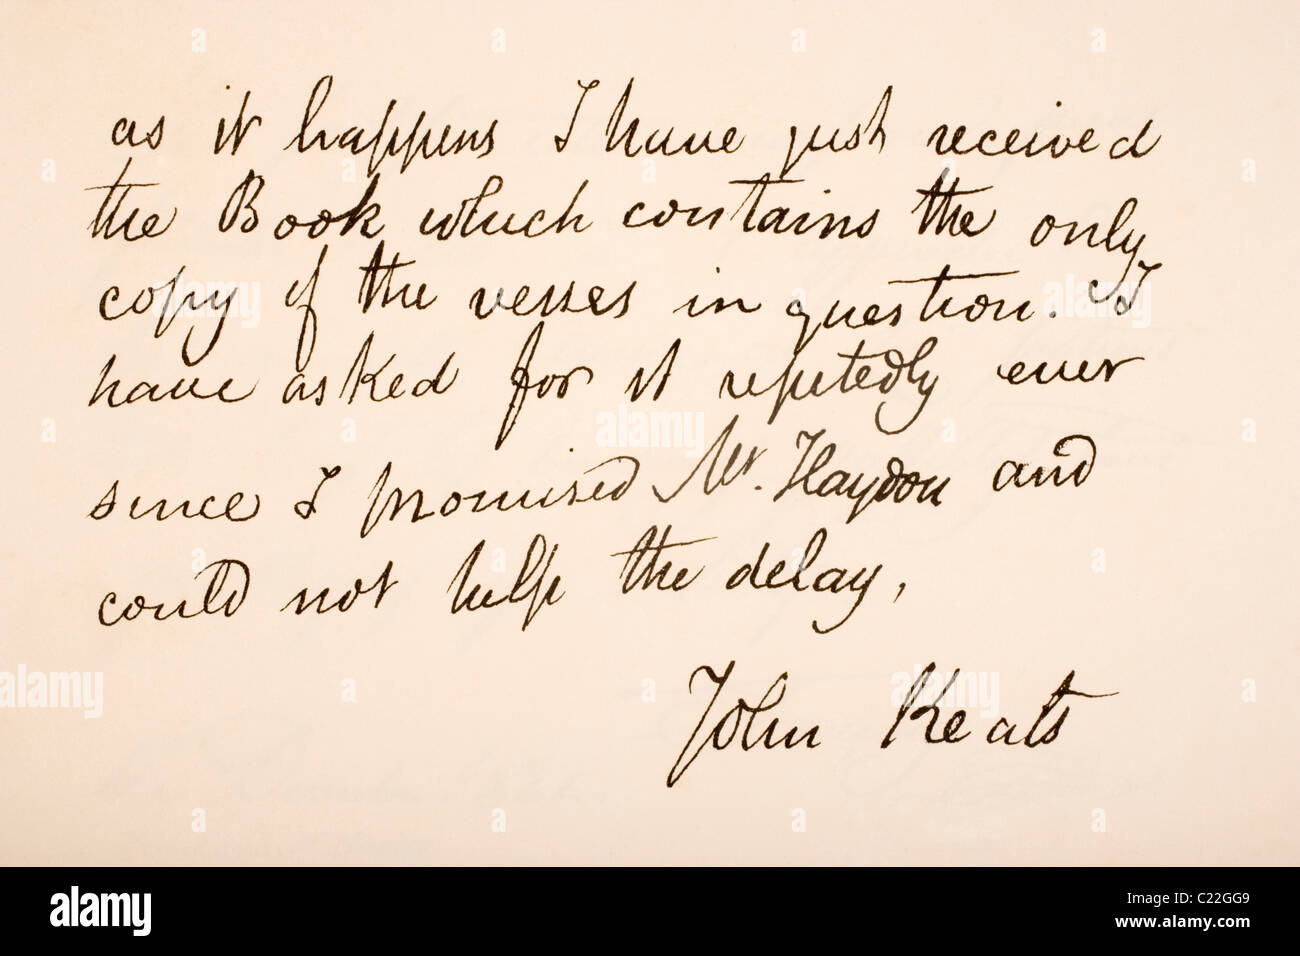 as it happens I have just received
the Book which contains the only
copy of the verses in question. I
have asked for it repetedly ever
since I promised Mr. Haydon and
could not help the delay,
John Keats
alamy
Image ID: C22GG9
www.alamy.com